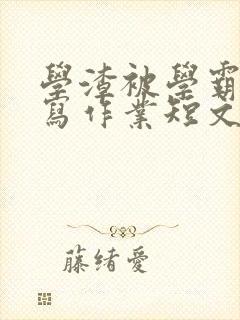 學渣被學霸
寫作業短文
藤緒愛